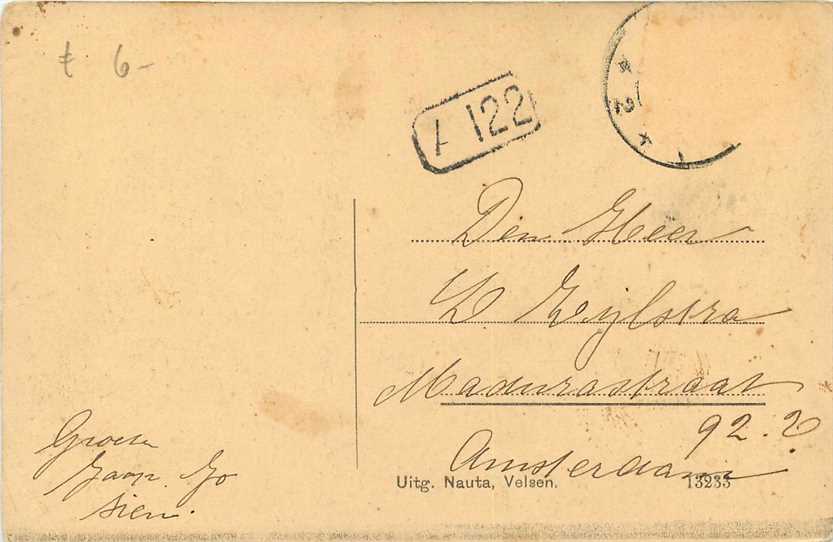 € 6-
A 122
Den Heer
Zijlstra
Madurastraat
92.2
Amsterdam
Groeten
Jaap. Jo
Sien.
Uitg. Nauta, Velsen. 13233